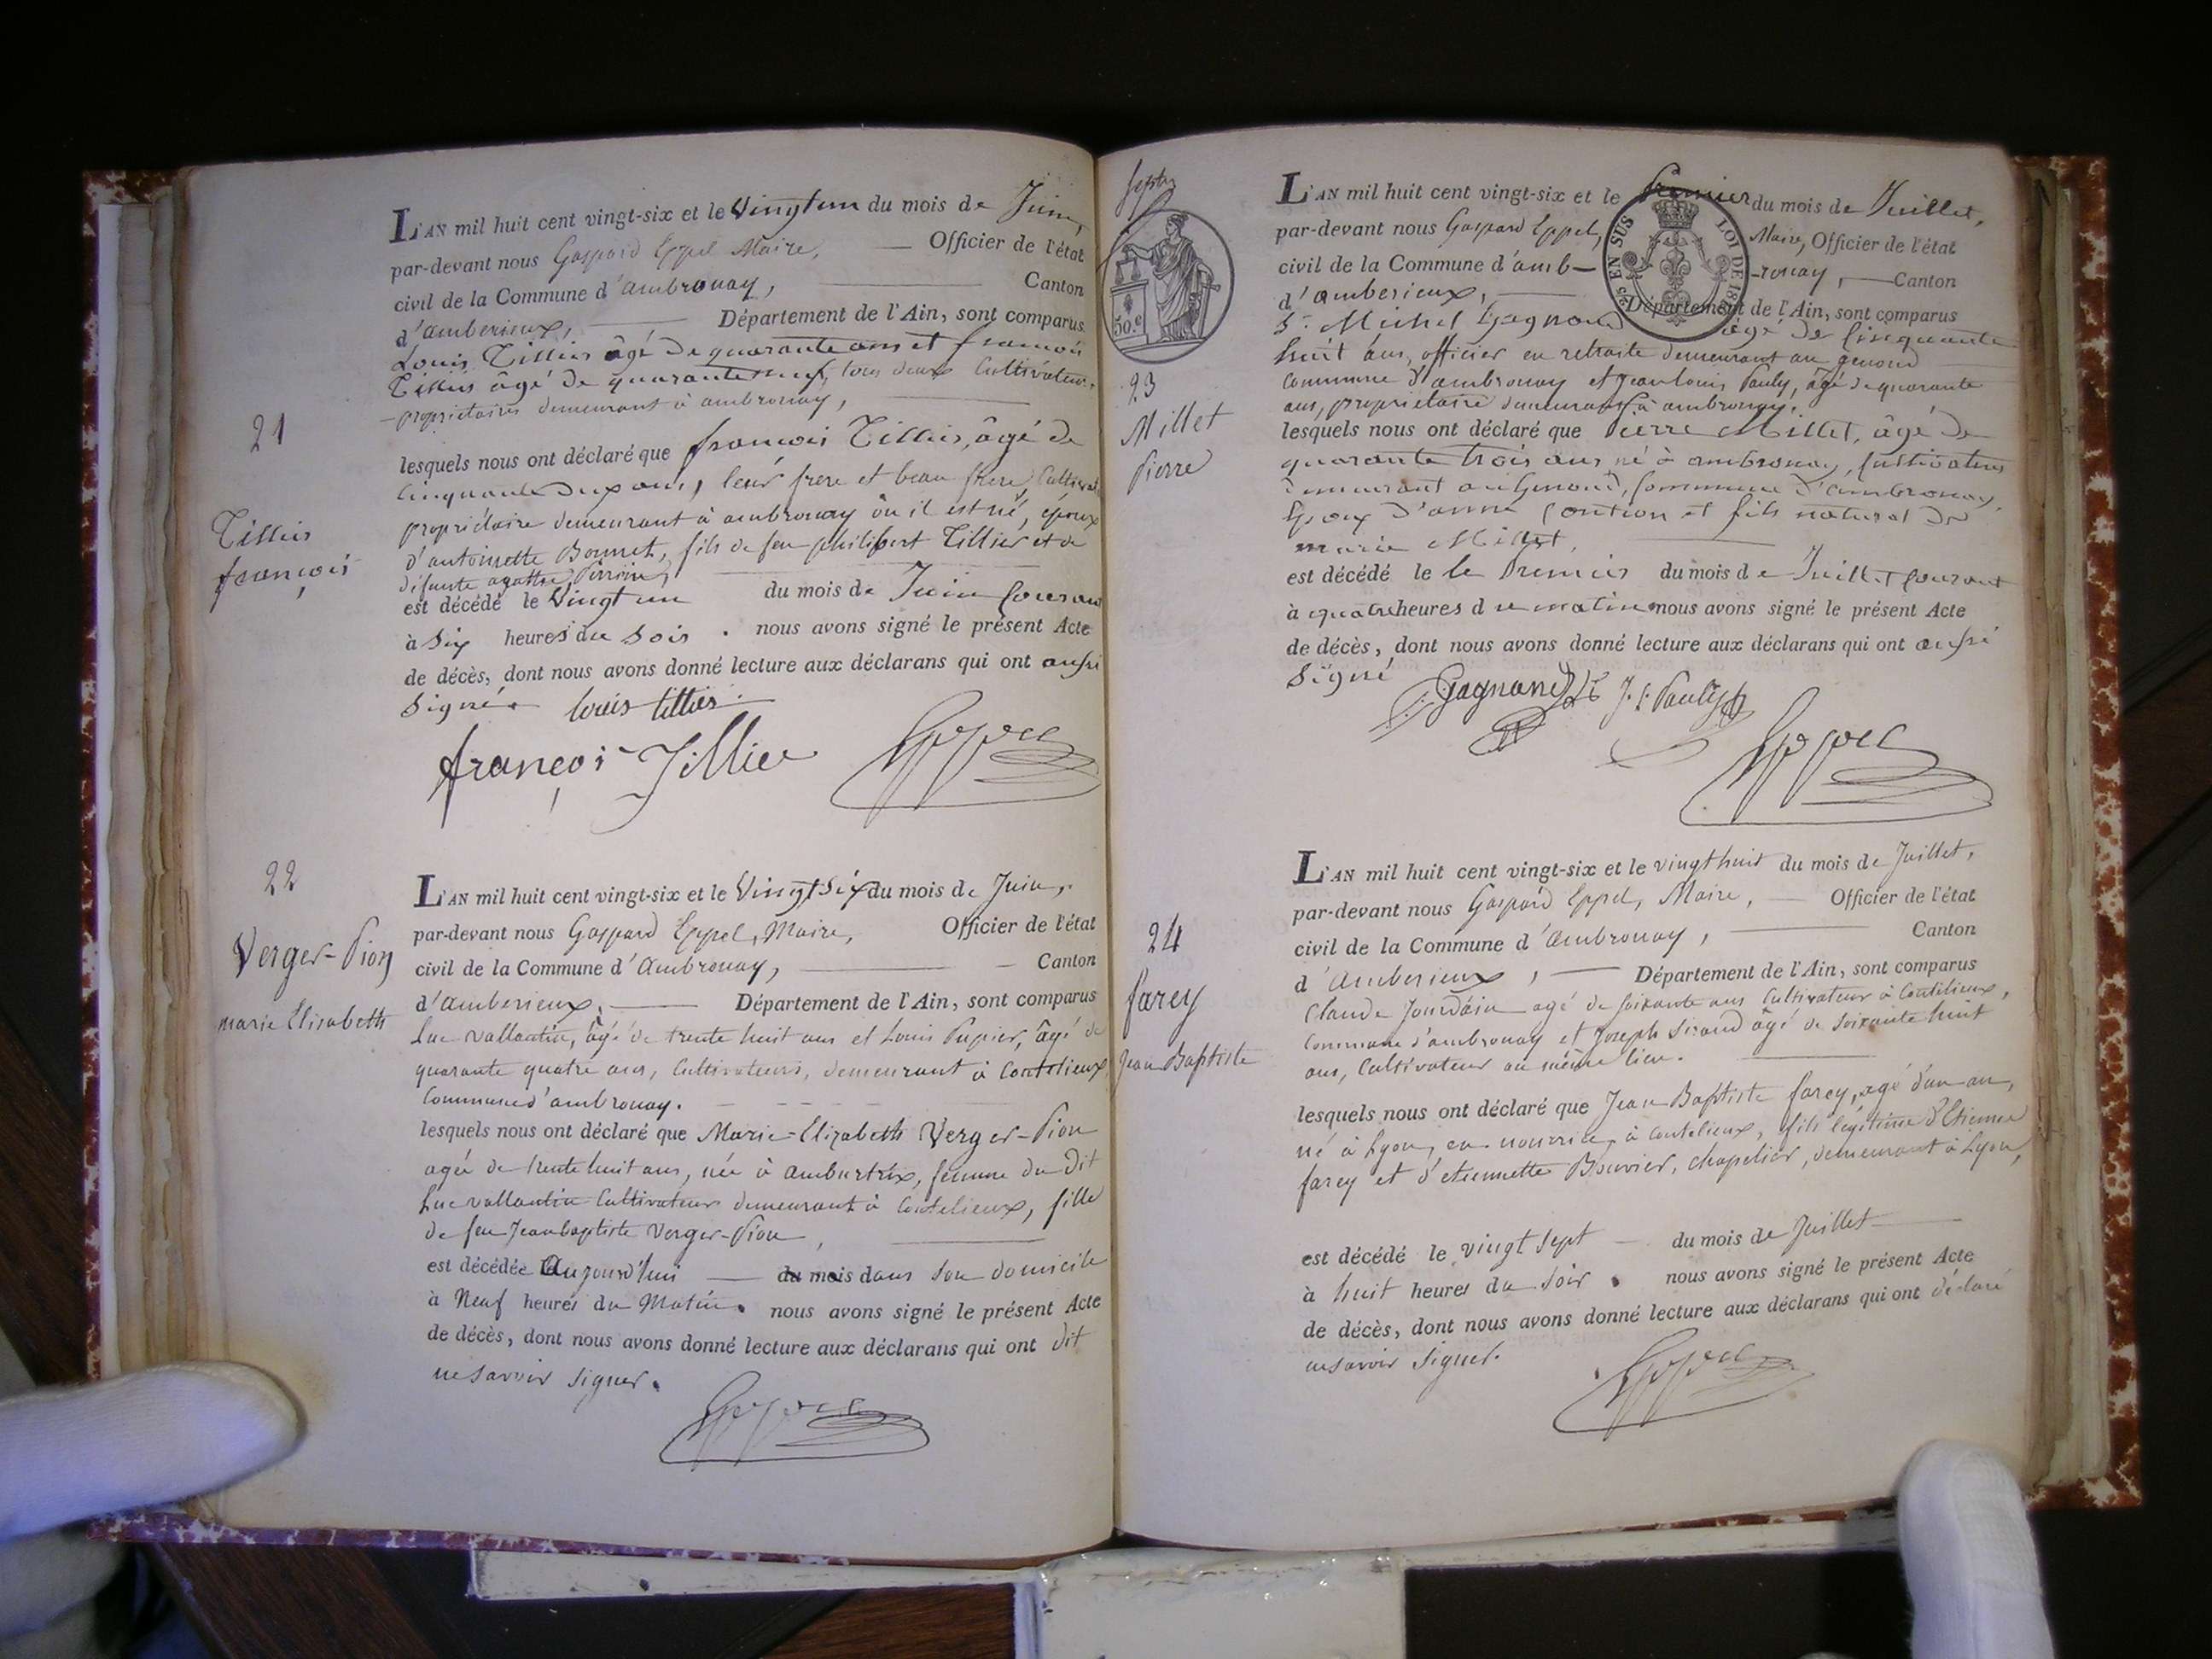 L'AN mil huit cent vingt-six et le Vingt un du mois de Juin,
par-devant nous Gaspard Eppel Maire, — Officier de l'état
civil de la Commune d'ambronay, — Canton
d'amberieux, — Département de l'Ain, sont comparus
Louis Tillier âgé de quarante ans et françois
Tillier âgé de quarante neuf, tous deux Cultivateurs
propriétaires demeurant à ambronay,
21
Tillier
françois
lesquels nous ont déclaré que françois Tillier, âgé de
Cinquante deux ans, leur frere et beau frere,
propriétaire demeurant à ambronay où il est né, époux
d'antoinette Bonnet, fils de feu philibert Tillier et de
défunte agathe
est décédé le Vingt un du mois de Juin Courant
à Six heures du Soir. nous avons signé le présent Acte
de décès, dont nous avons donné lecture aux déclarans qui ont aussi
Signé. louis tillier
françois Tillier Eppel
22
Verger-Pion
marie Elisabeth
L'AN mil huit cent vingt-six et le Vingt Six du mois de Juin,
par-devant nous Gaspard Eppel, Maire, Officier de l'état
civil de la Commune d'Ambronay, — Canton
d'amberieux, — Département de l'Ain, sont comparus
Luc Vallantin, âgé de trente huit ans et Louis Pupier, âgé de
quarante quatre ans, Cultivateurs, demeurant à Coutelieux
Commune d'ambronay.
lesquels nous ont déclaré que Marie-Elizabeth Verger-Pion
agée de trente huit ans, née à amburtrix, femme du Dit
Luc vallantin Cultivateur demeurant à Coutelieux, fille
de feu Jean baptiste Verger-Pion,
est décédée Aujourd'hui — du mois dans son domicile
à Neuf heures du Matin. nous avons signé le présent Acte
de décès, dont nous avons donné lecture aux déclarans qui ont dit
ne savoir signer.
Eppel
Septr
50.c
L'AN mil huit cent vingt-six et le Premier du mois de Juillet,
par-devant nous Gaspard Eppel, Maire, Officier de l'état
civil de la Commune d'amb-ronay, — Canton
d'amberieux, — Département de l'Ain, sont comparus
EN SUS LOI DE
Sr. Michel Gagnand âgé de Cinquante
huit ans, officier en retraite demeurant au genoud
commune d'ambronay et Jean louis Pauly, âgé de quarante
ans, propriétaire demeurant à ambronay.
23
Millet
Pierre
lesquels nous ont déclaré que Pierre Millet, âgé de
quarante trois ans né à ambronay, Cultivateur
demeurant au Genoud, Commune d'ambronay,
Epoux d'anne et fils naturel de
marie Millet,
est décédé le le Premier du mois de Juillet Courant
à quatre heures du matin nous avons signé le présent Acte
de décès, dont nous avons donné lecture aux déclarans qui ont aussi
Signé
Gagnand J. L. Pauly
Eppel
L'AN mil huit cent vingt-six et le vingt huit du mois de Juillet,
par-devant nous Gaspard Eppel, Maire, — Officier de l'état
civil de la Commune d'Ambronay, — Canton
d'Amberieux, — Département de l'Ain, sont comparus
Claude Jourdain agé de soixante ans Cultivateur à Coutelieux,
commune d'ambronay et Joseph Sirand âgé de soixante huit
ans, Cultivateur au même lieu.
24
farey
Jean Baptiste
lesquels nous ont déclaré que Jean Baptiste farey, agé d'un an,
né à Lyon, en nourrice à Coutelieux, fils légitime d'Etienne
farey et d'etiennette Bouvier, chapelier, demeurant à Lyon,
est décédé le vingt sept — du mois de Juillet
à huit heures du Soir. nous avons signé le présent Acte
de décès, dont nous avons donné lecture aux déclarans qui ont déclaré
ne savoir signer.
Eppel